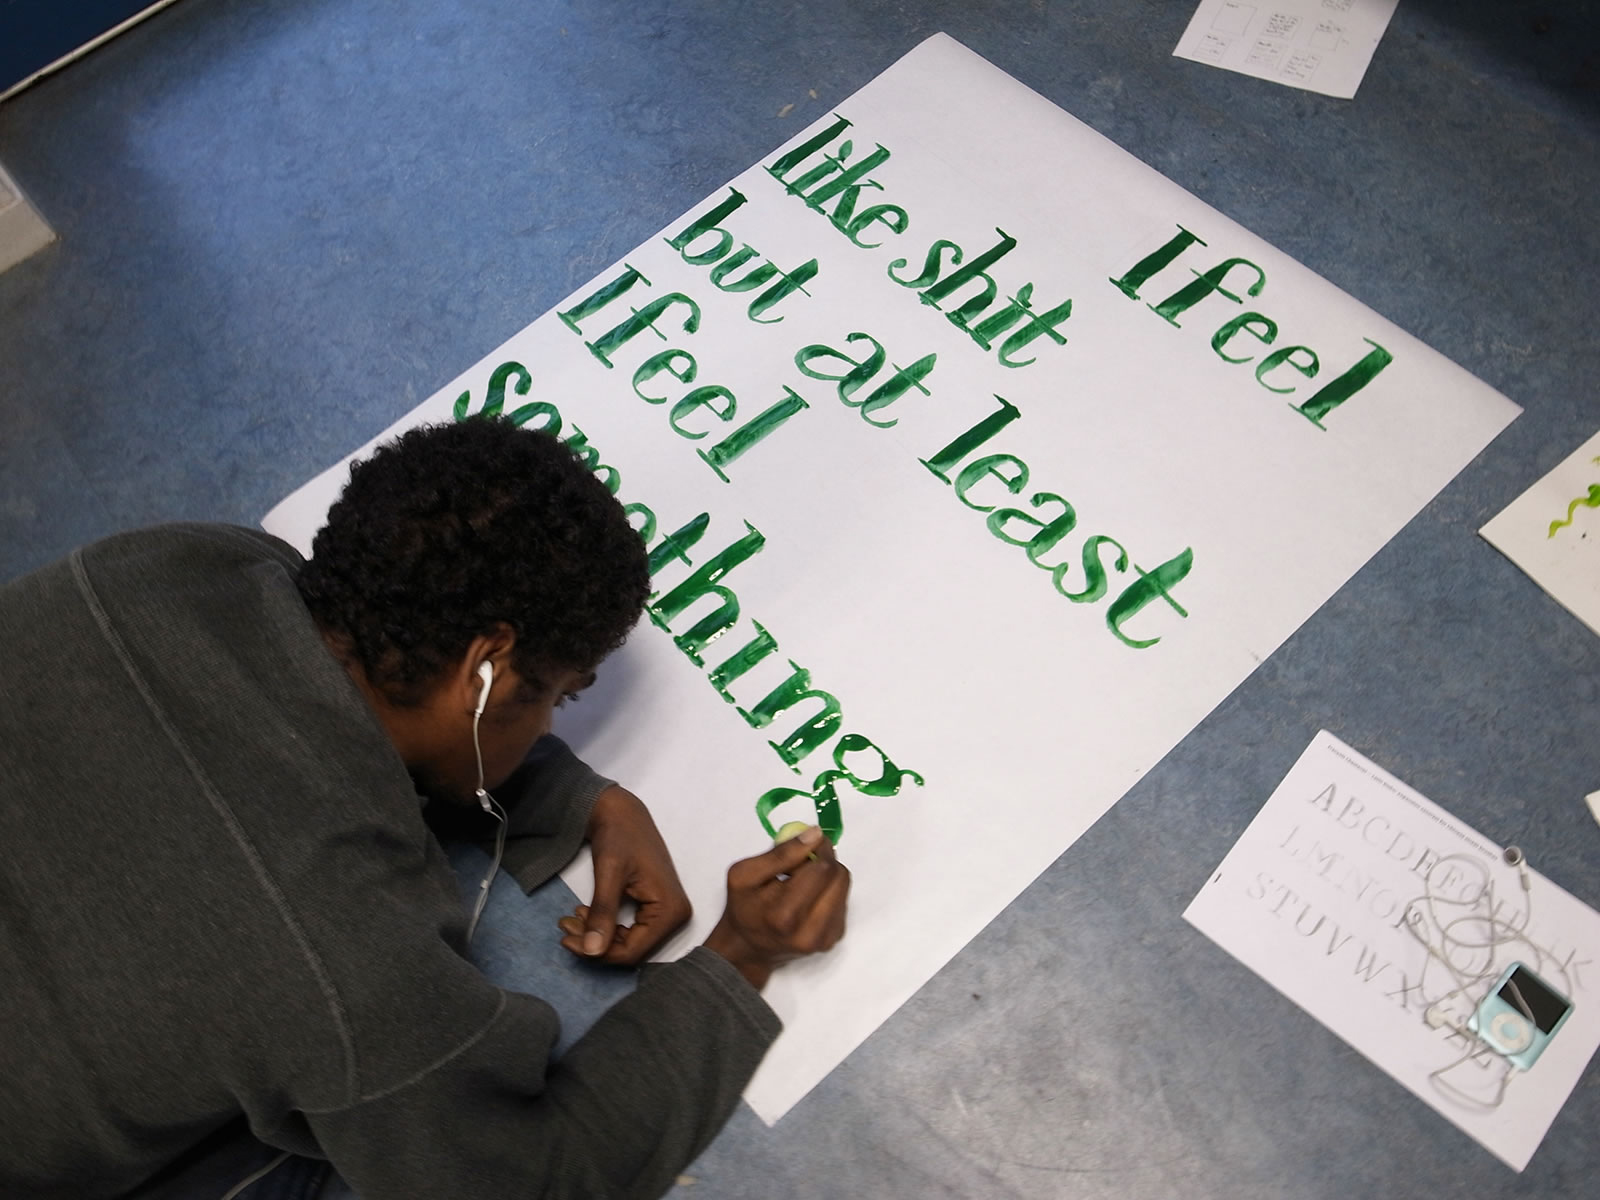 I feel
like shit
but at least
I feel
something
ABCDEFGHIJK
LMNOPQR
STUVWXYZ